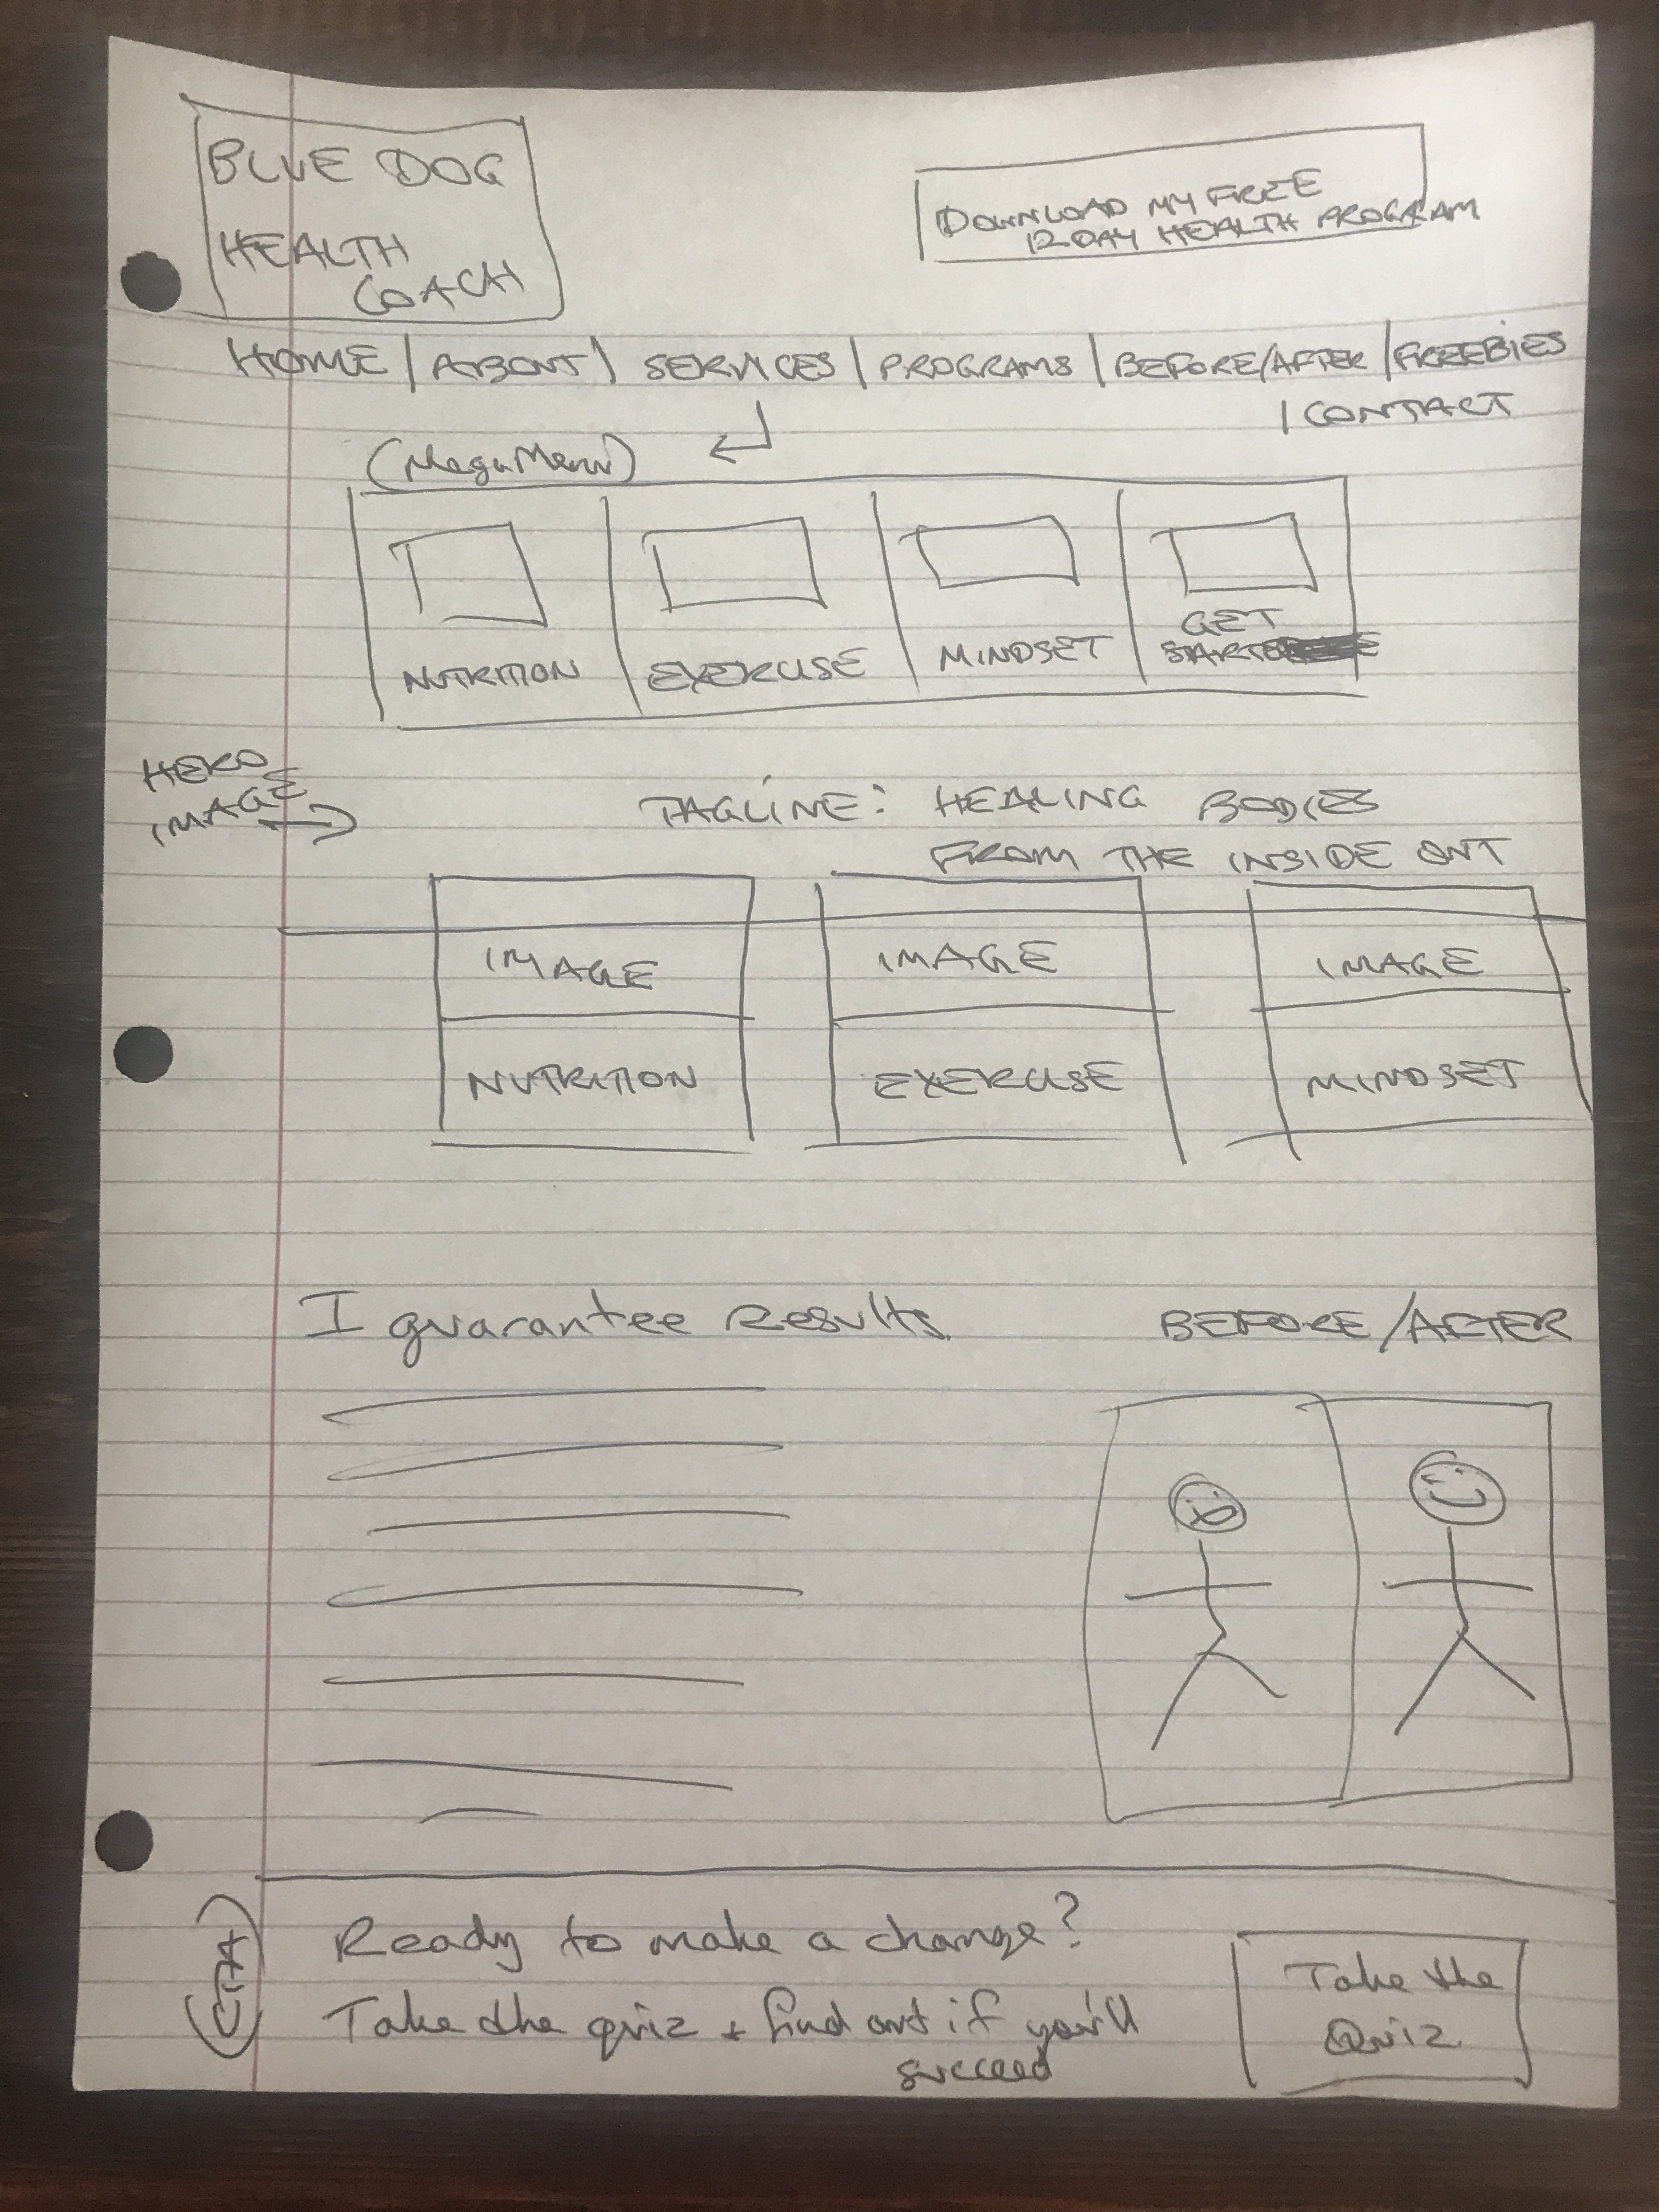 BLUE DOG
HEALTH
COACH
DOWNLOAD MY FREE
12 DAY HEALTH PROGRAM
HOME | ABOUT | SERVICES | PROGRAMS | BEFORE/AFTER | FREEBIES
| CONTACT
(Mega Menu)
NUTRITION
EXERCISE
MINDSET
GET
STARTED
HERO
IMAGE
TAGLINE: HEALING BODIES
FROM THE INSIDE OUT
IMAGE
IMAGE
IMAGE
NUTRITION
EXERCISE
MINDSET
I guarantee Results.
BEFORE/AFTER
CTA
Ready to make a change?
Take the quiz + find out if you'll
succeed
Take the
Quiz